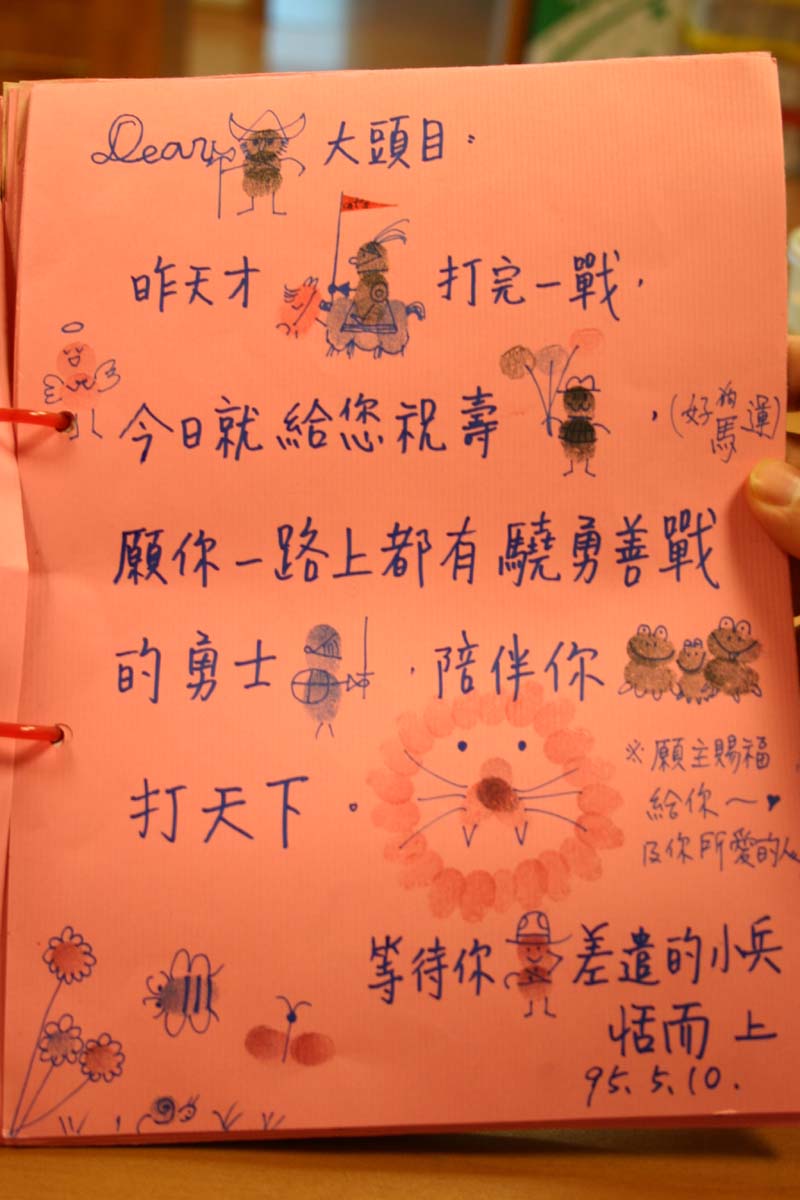 Dear 大頭目：
昨天才 打完一戰，
今日就給您祝壽 ，(好狗馬運)
願你一路上都有驍勇善戰
的勇士 ，陪伴你
打天下。
※願主賜福
給你～♥
及你所愛的人
等待你 差遣的小兵
恬而 上
95.5.10.